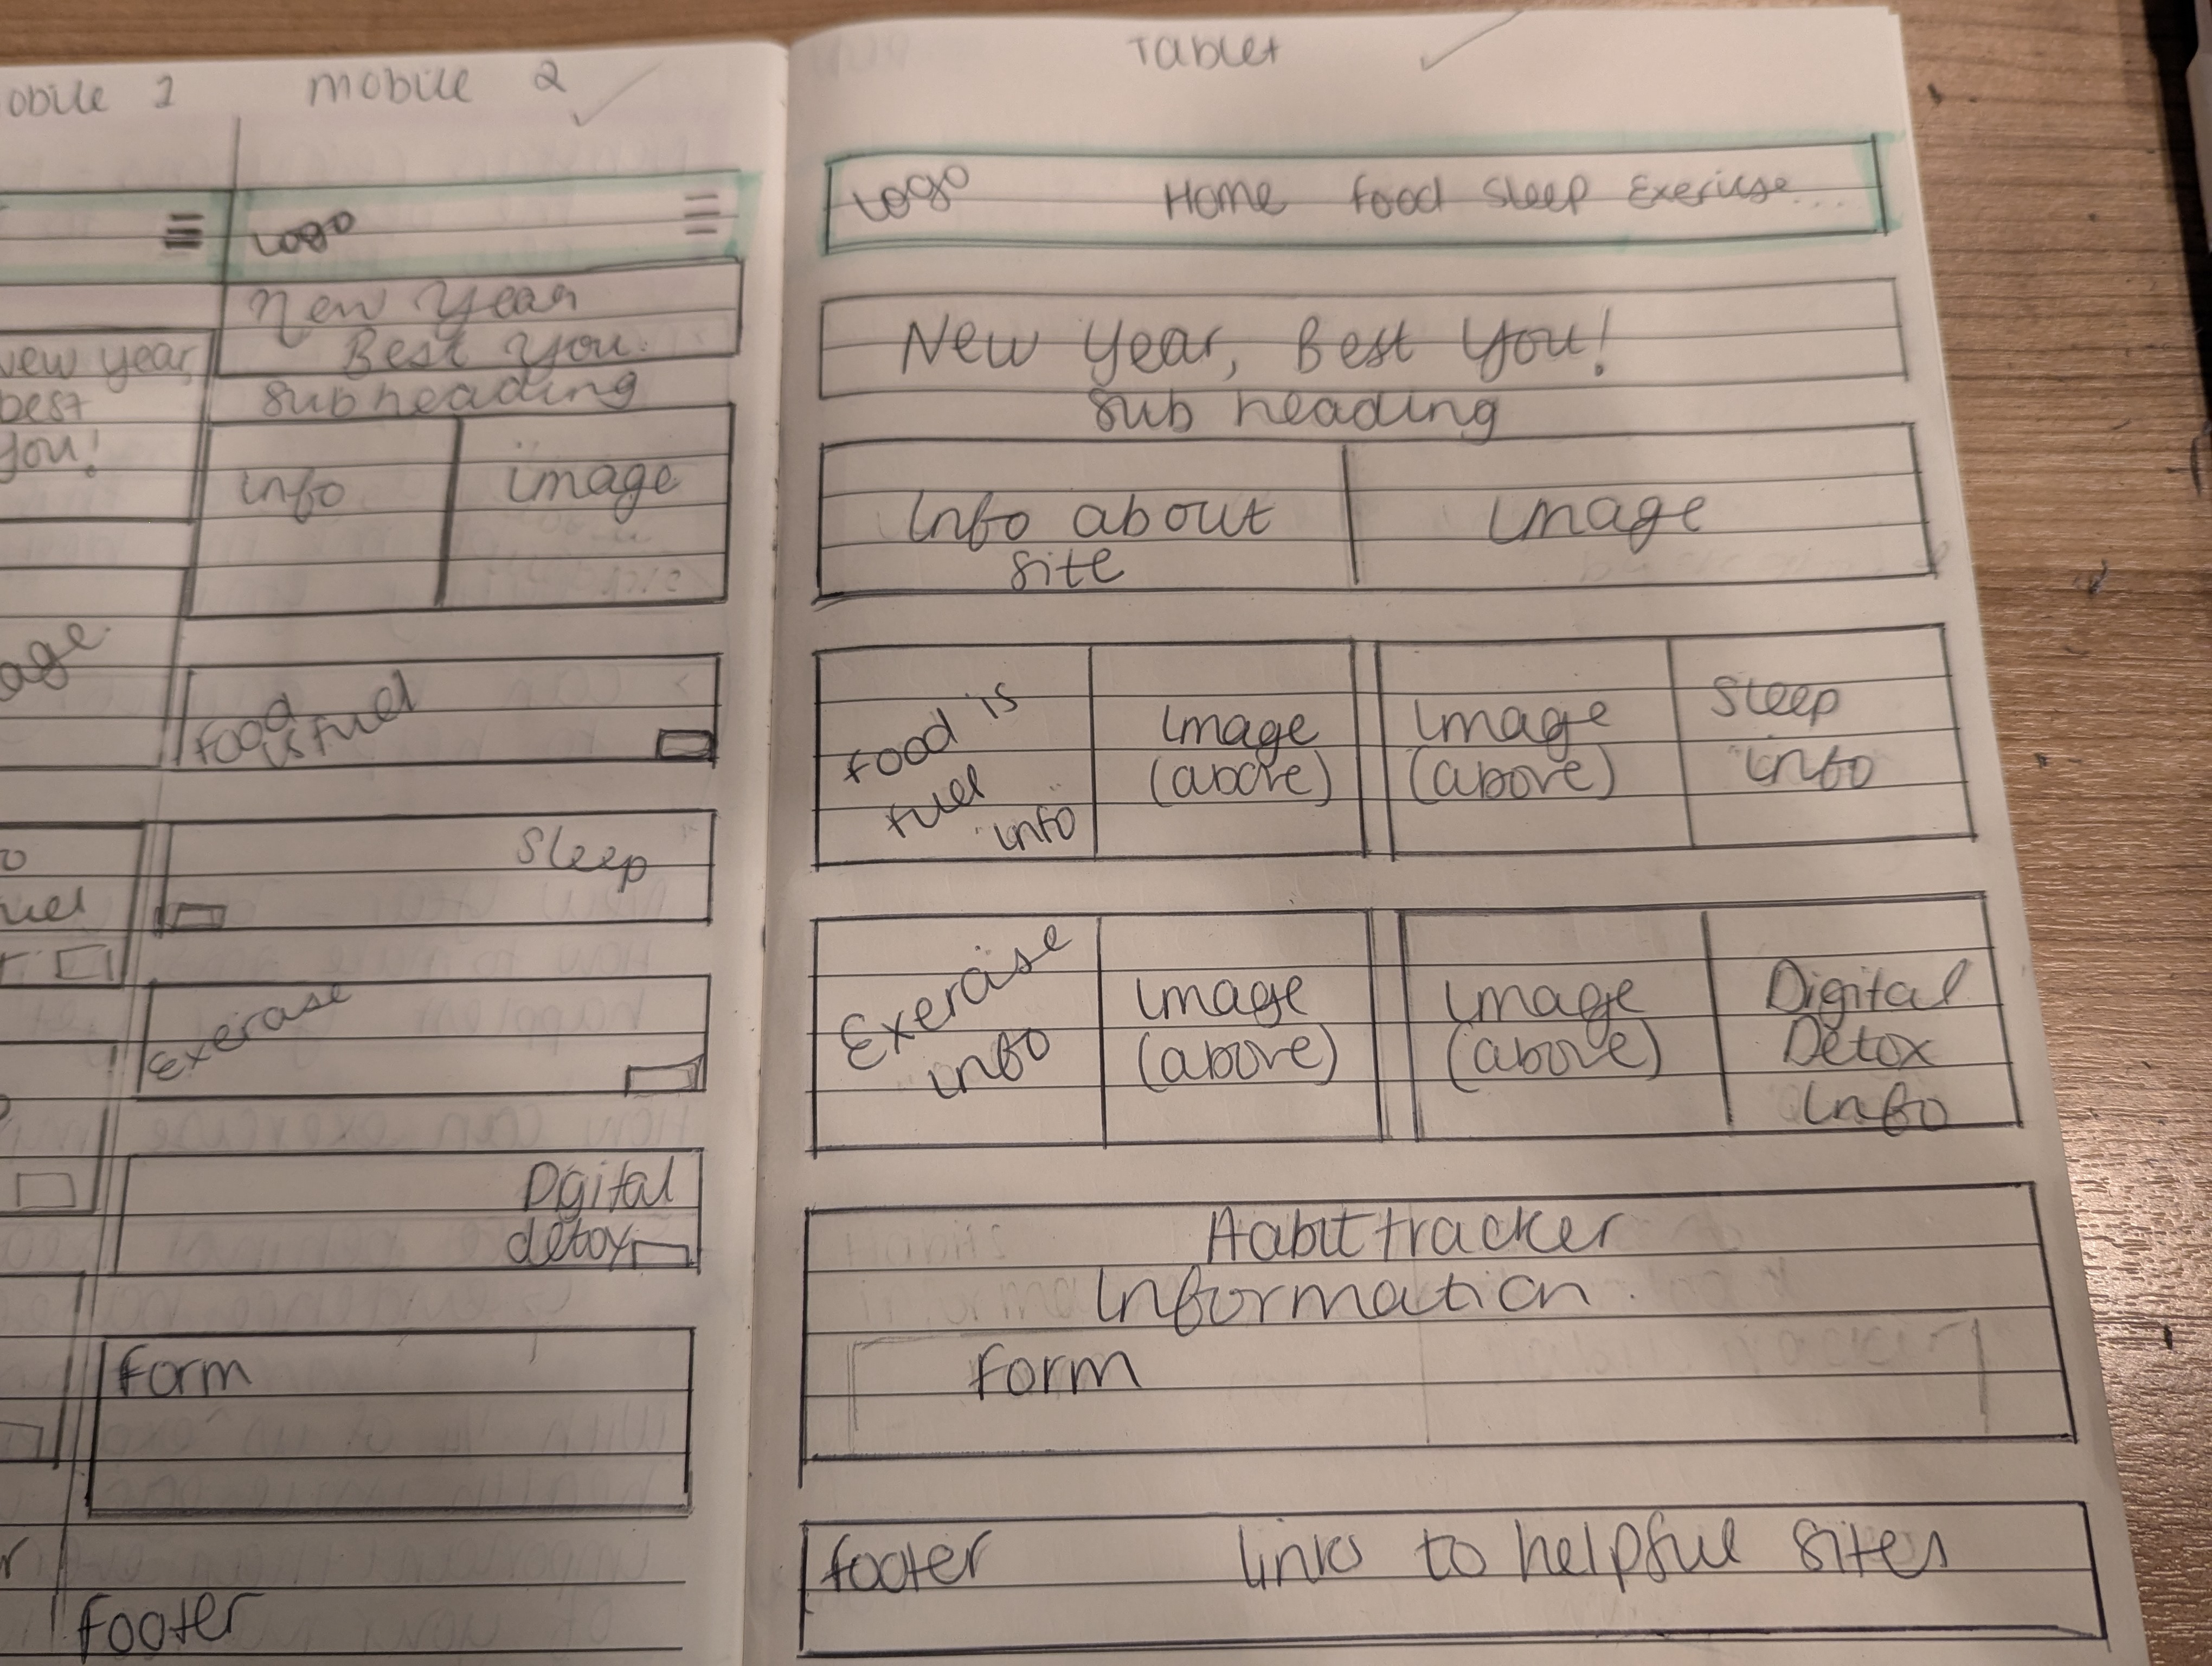 mobile 2
Logo
New Year
Best You.
sub heading
info
image
food
is fuel
Sleep
Exerase
Dgital
detox
form
Footer
obile 1
new year,
best
you!
age
uel
Tablet
Logo Home food Sleep Exericse...
New Year, Best You!
sub heading
Info about
site
Image
food is
fuel
info
Image
(above)
Image
(above)
Sleep
info
Exercise
info
Image
(above)
Image
(above)
Digital
Detox
Info
Habit tracker
Information.
Form
footer links to helpful sites